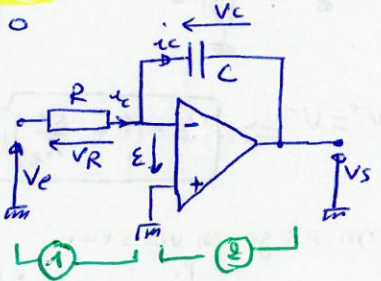 Vc
ic
C
R
ic
-
VR
ε
+
Ve
Vs
1
2